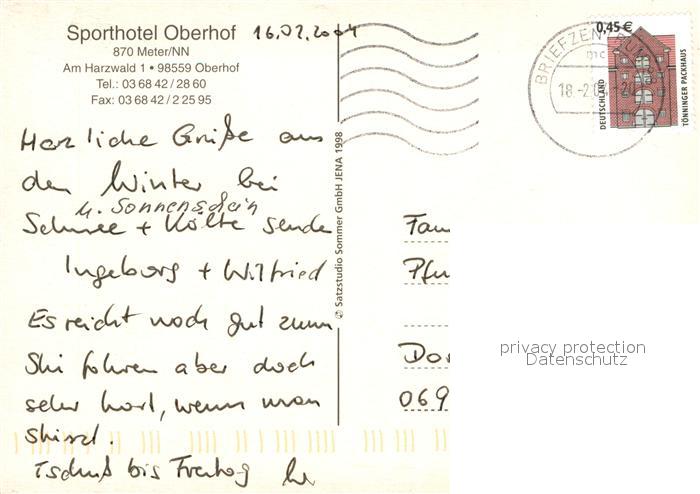 Sporthotel Oberhof
870 Meter/NN
Am Harzwald 1 • 98559 Oberhof
Tel.: 03 68 42 / 28 60
Fax: 03 68 42 / 2 25 95
16.02.2004
Herzliche Grüße aus
dem Winter bei
u. Sonnenschein
Schnee + Kälte sende
Ingeborg + Wilfried
Es reicht noch gut zum
Ski fahren aber doch
sehr hart, wenn man
stürzt.
Tschüß bis Freitag
© Satzstudio Sommer GmbH JENA 1998
BRIEFZEN
18.-2.04-20
0,45 €
DEUTSCHLAND
TÖNNINGER PACKHAUS
Fam
Pfu
Dor
069
privacy protection
Datenschutz